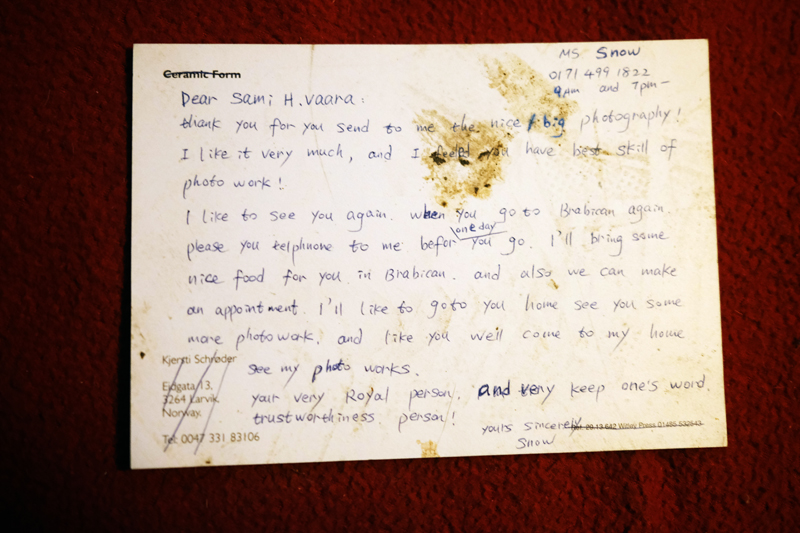 Ceramic Form
MS Snow
0171 499 1822
9AM and 7pm-
Dear Sami H. Vaara:
thank you for you send to me the nice / big photography!
I like it very much, and I you have best skill of
photo work!
I like to see you again. when you go to Brabican again.
please you telphnone to me befor one day you go. I'll bring some
nice food for you in Brabican. and also we can make
an appointment. I'll like to goto you home see you some
more photowork. and like you well come to my home
see my photo works.
your very Royal person. and very keep one's word.
trustworthiness person!
yours sincerely
Snow
Kjersti Schrøder
Eidgata 13,
3264 Larvik
Norway.
Tel: 0047 331 83106